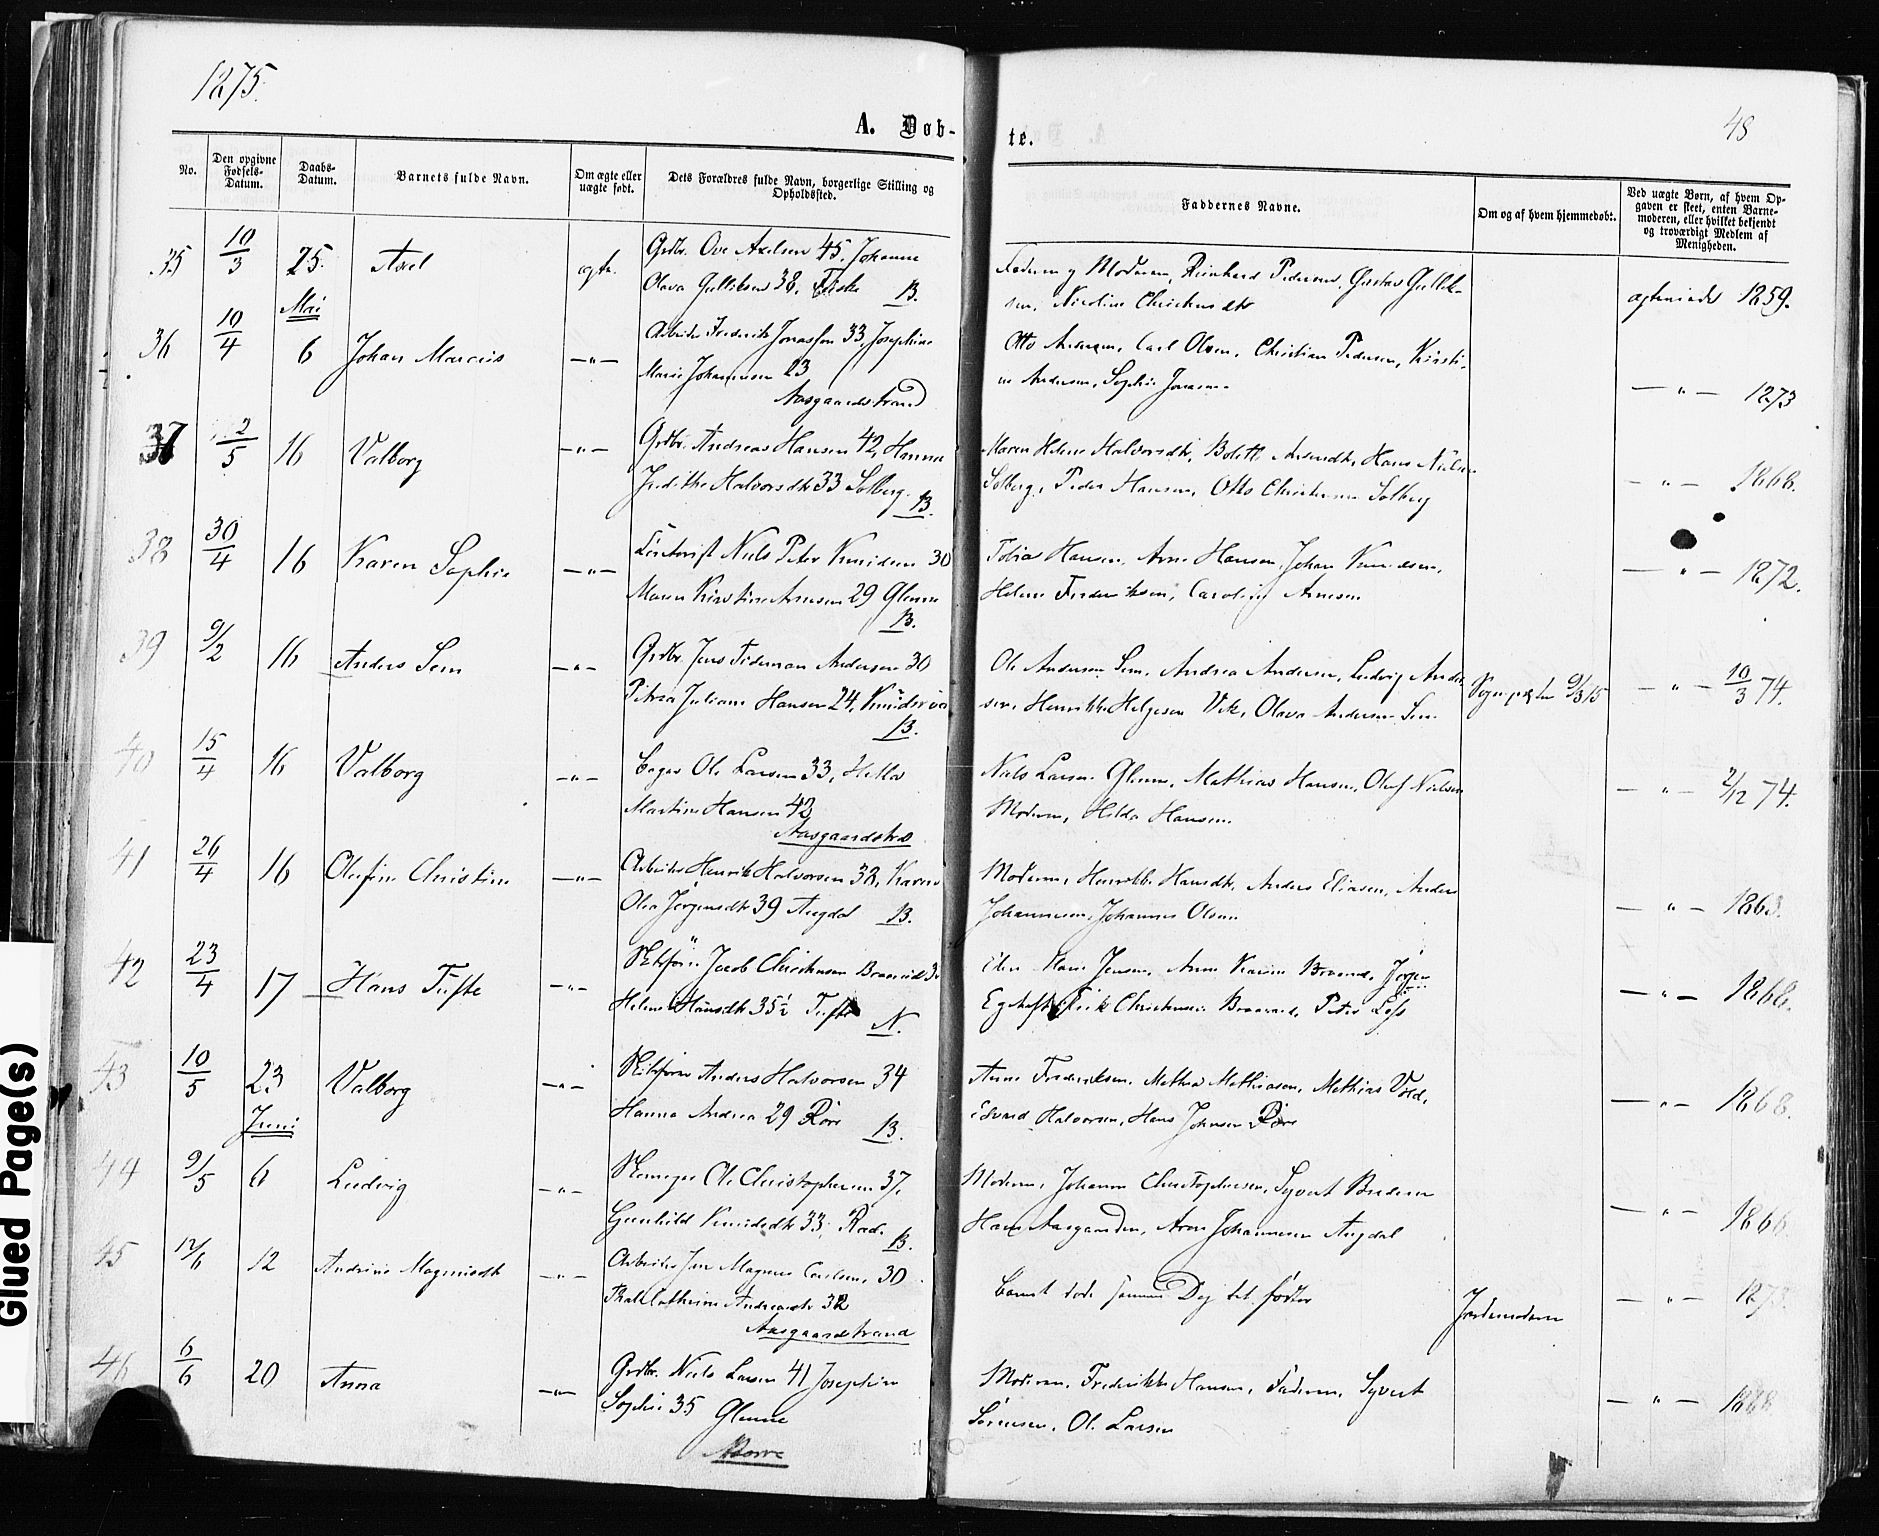 1875.
48
A. Døb-
te.
No.
Den opgivne Fødsels-Datum.
Daabs-Datum.
Barnets fulde Navn.
Om ægte eller uægte født.
Dets Forældres fulde Navn, borgerlige Stilling og Opholdssted.
Faddernes Navne.
Om og af hvem hjemmedøbt.
Ved uægte Børn, af hvem Opgaven er skeet, enten Barnemoderen, eller hvilket bekjendt og troværdigt Medlem af Menigheden.
35 10/3 25. Axel ægte. Grdbr. Ove Axelsen 45, Johanne
Olava Gulliksen 38, B.
Faderen og Moderen, Reinhard Pedersen, Gustav Gullik-
sen, Nicoline Christensdtr
1859.
Mai
36 10/4 6 Johan Marcus —"— Arbeider Frederik Jonassen 33, Josephine
Marie Johannesen 23
Aasgaardstrand
Otto Andersen, Carl Olsen, Christian Pedersen, Kirsti-
ne Andersen, Sophie Jonassen
—"— 1873
37 2/5 16 Valborg —"— Grdbr. Andreas Hansen 42, Hanna
Judithe Halvorsdtr 33 Solberg. B.
Maren Helene Halvorsdtr, Hans Nielsen
Solberg, Peder Hansen, Otto Christensen Solberg
—"— 1868.
38 30/4 16 Karen Sophie —"— Niels Peter Knudsen 30
Maren Kirstine Arnesen 29 Glenne
B.
Tobias Hansen, Arne Hansen, Johan Knudsen,
Helene Frederiksen, Caroline Arnesen
—"— 1872.
39 9/2 16 Anders Sem —"— Grdbr. Jens Tideman Andersen 30
Petrea Juliane Hansen 24,
B.
Ole Andersen Sem, Andrea Andersen, Ludvig Ander-
sen, Henrikke Helgesen Vik, Olava Andersen Sem
—"— 10/3 74.
40 15/4 16 Valborg —"— Bager Ole Larsen 33,
Martine Hansen 42
Aasgaardstrd
Niels Larsen Glenne, Mathias Hansen, Oluf Nielsen
Moderen, Hilda Hansen.
—"— 2/12 74.
41 26/4 16 Olufine Christine —"— Arbeider Henrik Halvorsen 38, Karen
Olea Jørgensdtr 39 Augdal B.
Moderen, Henrikke Hansdtr, Anders Eliasen, Anders
Johannesen, Johannes Olsen
—"— 1863.
42 23/4 17 Hans Tufte —"— Jacob Christensen
Helene Hansdtr 35½ Tufte N.
Elen Marie Jensen, Anne Jørgen
Christensen Peder
—"— 1866.
43 10/5 23 Valborg —"— Anders Halvorsen 34
Hanna Andrea 29 Røre B.
Anne Frederiksen, Mathea Mathiasen, Mathias Vold,
Edvard Halvorsen, Hans Johnsen Røre
—"— 1868.
Juni
44 9/5 6 Ludvig —"— Ole Christophersen 37,
Gunhild Knudsdtr 33, Rød. B.
Moderen, Johanne Christophersen, Syvert
Hans Aasgaarden, Arne Johannesen Augdal
—"— 1866
45 12/6 12 Andrine Magnusdtr —"— Arbeider Jens Magnus Carlsen, 30
Cathrine Andreasdtr 32
Aasgaardstrand
Barnet døde samme Dag det fødtes
Jordemoderen
—"— 1873.
46 6/6 20 Anna —"— Grdbr. Niels Larsen 41 Josephine
Sophie 35 Glenne
Borre
Moderen, Frederikke Hansen, Faderen, Syvert
Sørensen, Ole Larsen
—"— 1868
Glued Page(s)